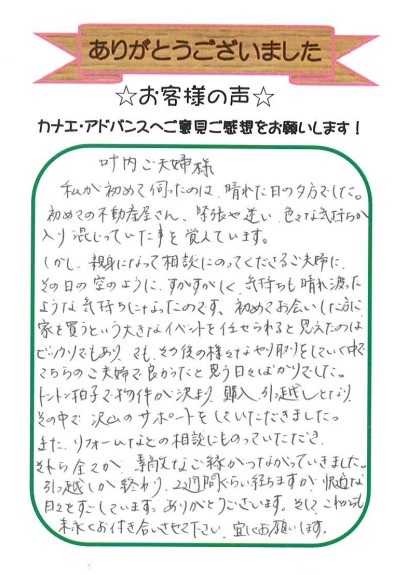 ありがとうございました
☆お客様の声☆
カナエ・アドバンスへご意見ご感想をお願いします！
叶内ご夫婦様
私が初めて伺ったのは、晴れた日の夕方でした。
初めての不動産屋さん、緊張や迷い、色々な気持ちが
入り混じっていた事を覚えています。
しかし、親身になって相談にのってくださるご夫婦に、
その日の空のように、すがすがしく、気持ちも晴れ渡った
ような気持ちになったのです。初めてお会いした方に
家を買うという大きなイベントを任せられると思えたのは
ビックリでもあり、でも、その後の様々なやり取りをしていく中で
こちらのご夫婦で良かったと思う日々ばかりでした。
トントン拍子で物件が決まり、購入、引っ越しとなり、
その中で、沢山のサポートをしていただきました。
また、リフォームなどの相談にものっていただき、
それら全てが、素敵なご縁がつながっていきました。
引っ越しが終わり、2週間ぐらい経ちますが、快適な
日々をすごしています。ありがとうございます。そして、これからも
末永くお付き合いさせて下さい。宜しくお願いします。